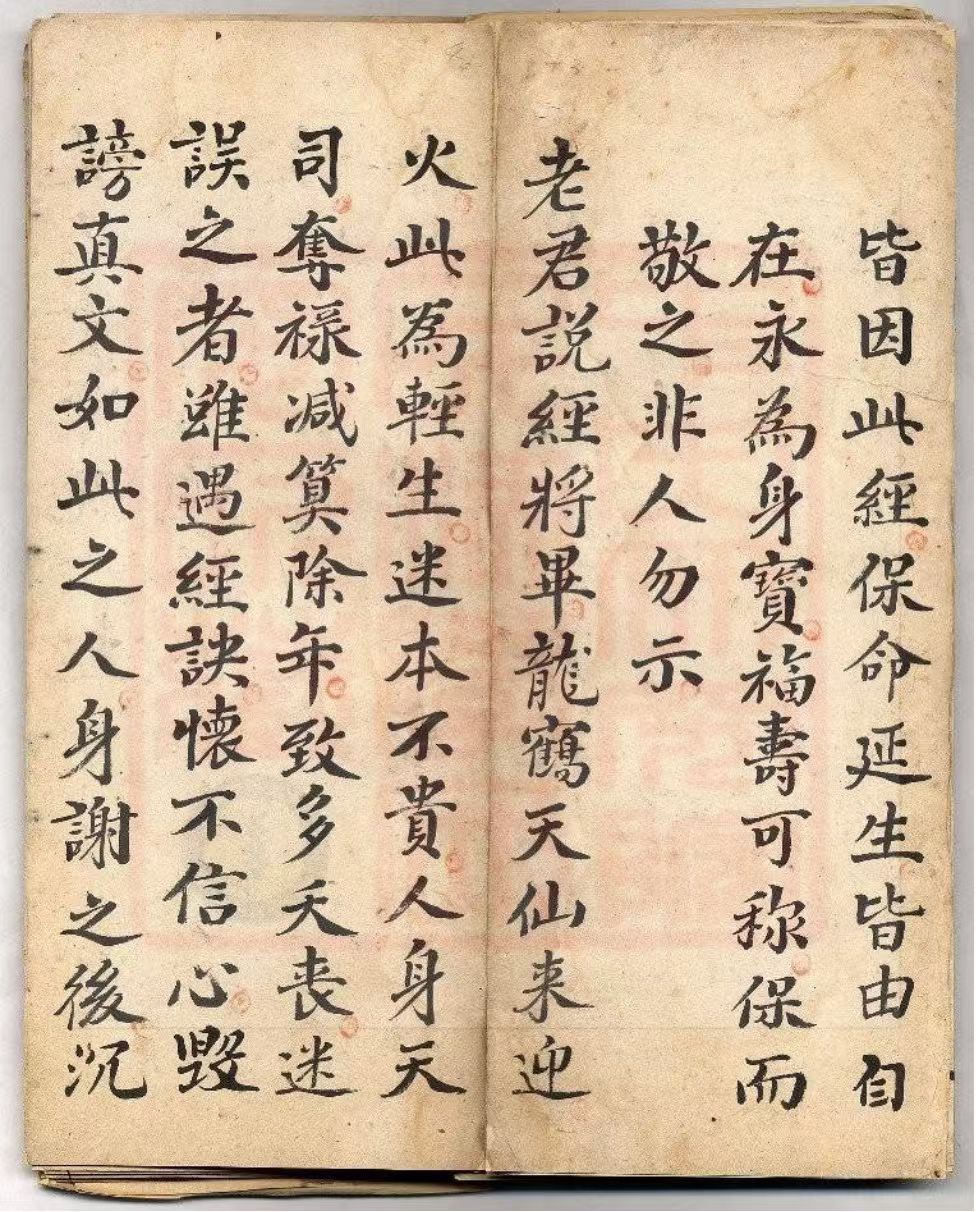 皆因此經保命延生皆由自
在永為身寶福壽可称保而
敬之非人勿示
老君説經將畢龍鶴天仙来迎
火此為輕生迷本不貴人身天
司奪禄减算除年致多夭丧迷
誤之者雖遇經訣懷不信心毀
謗真文如此之人身謝之後沉